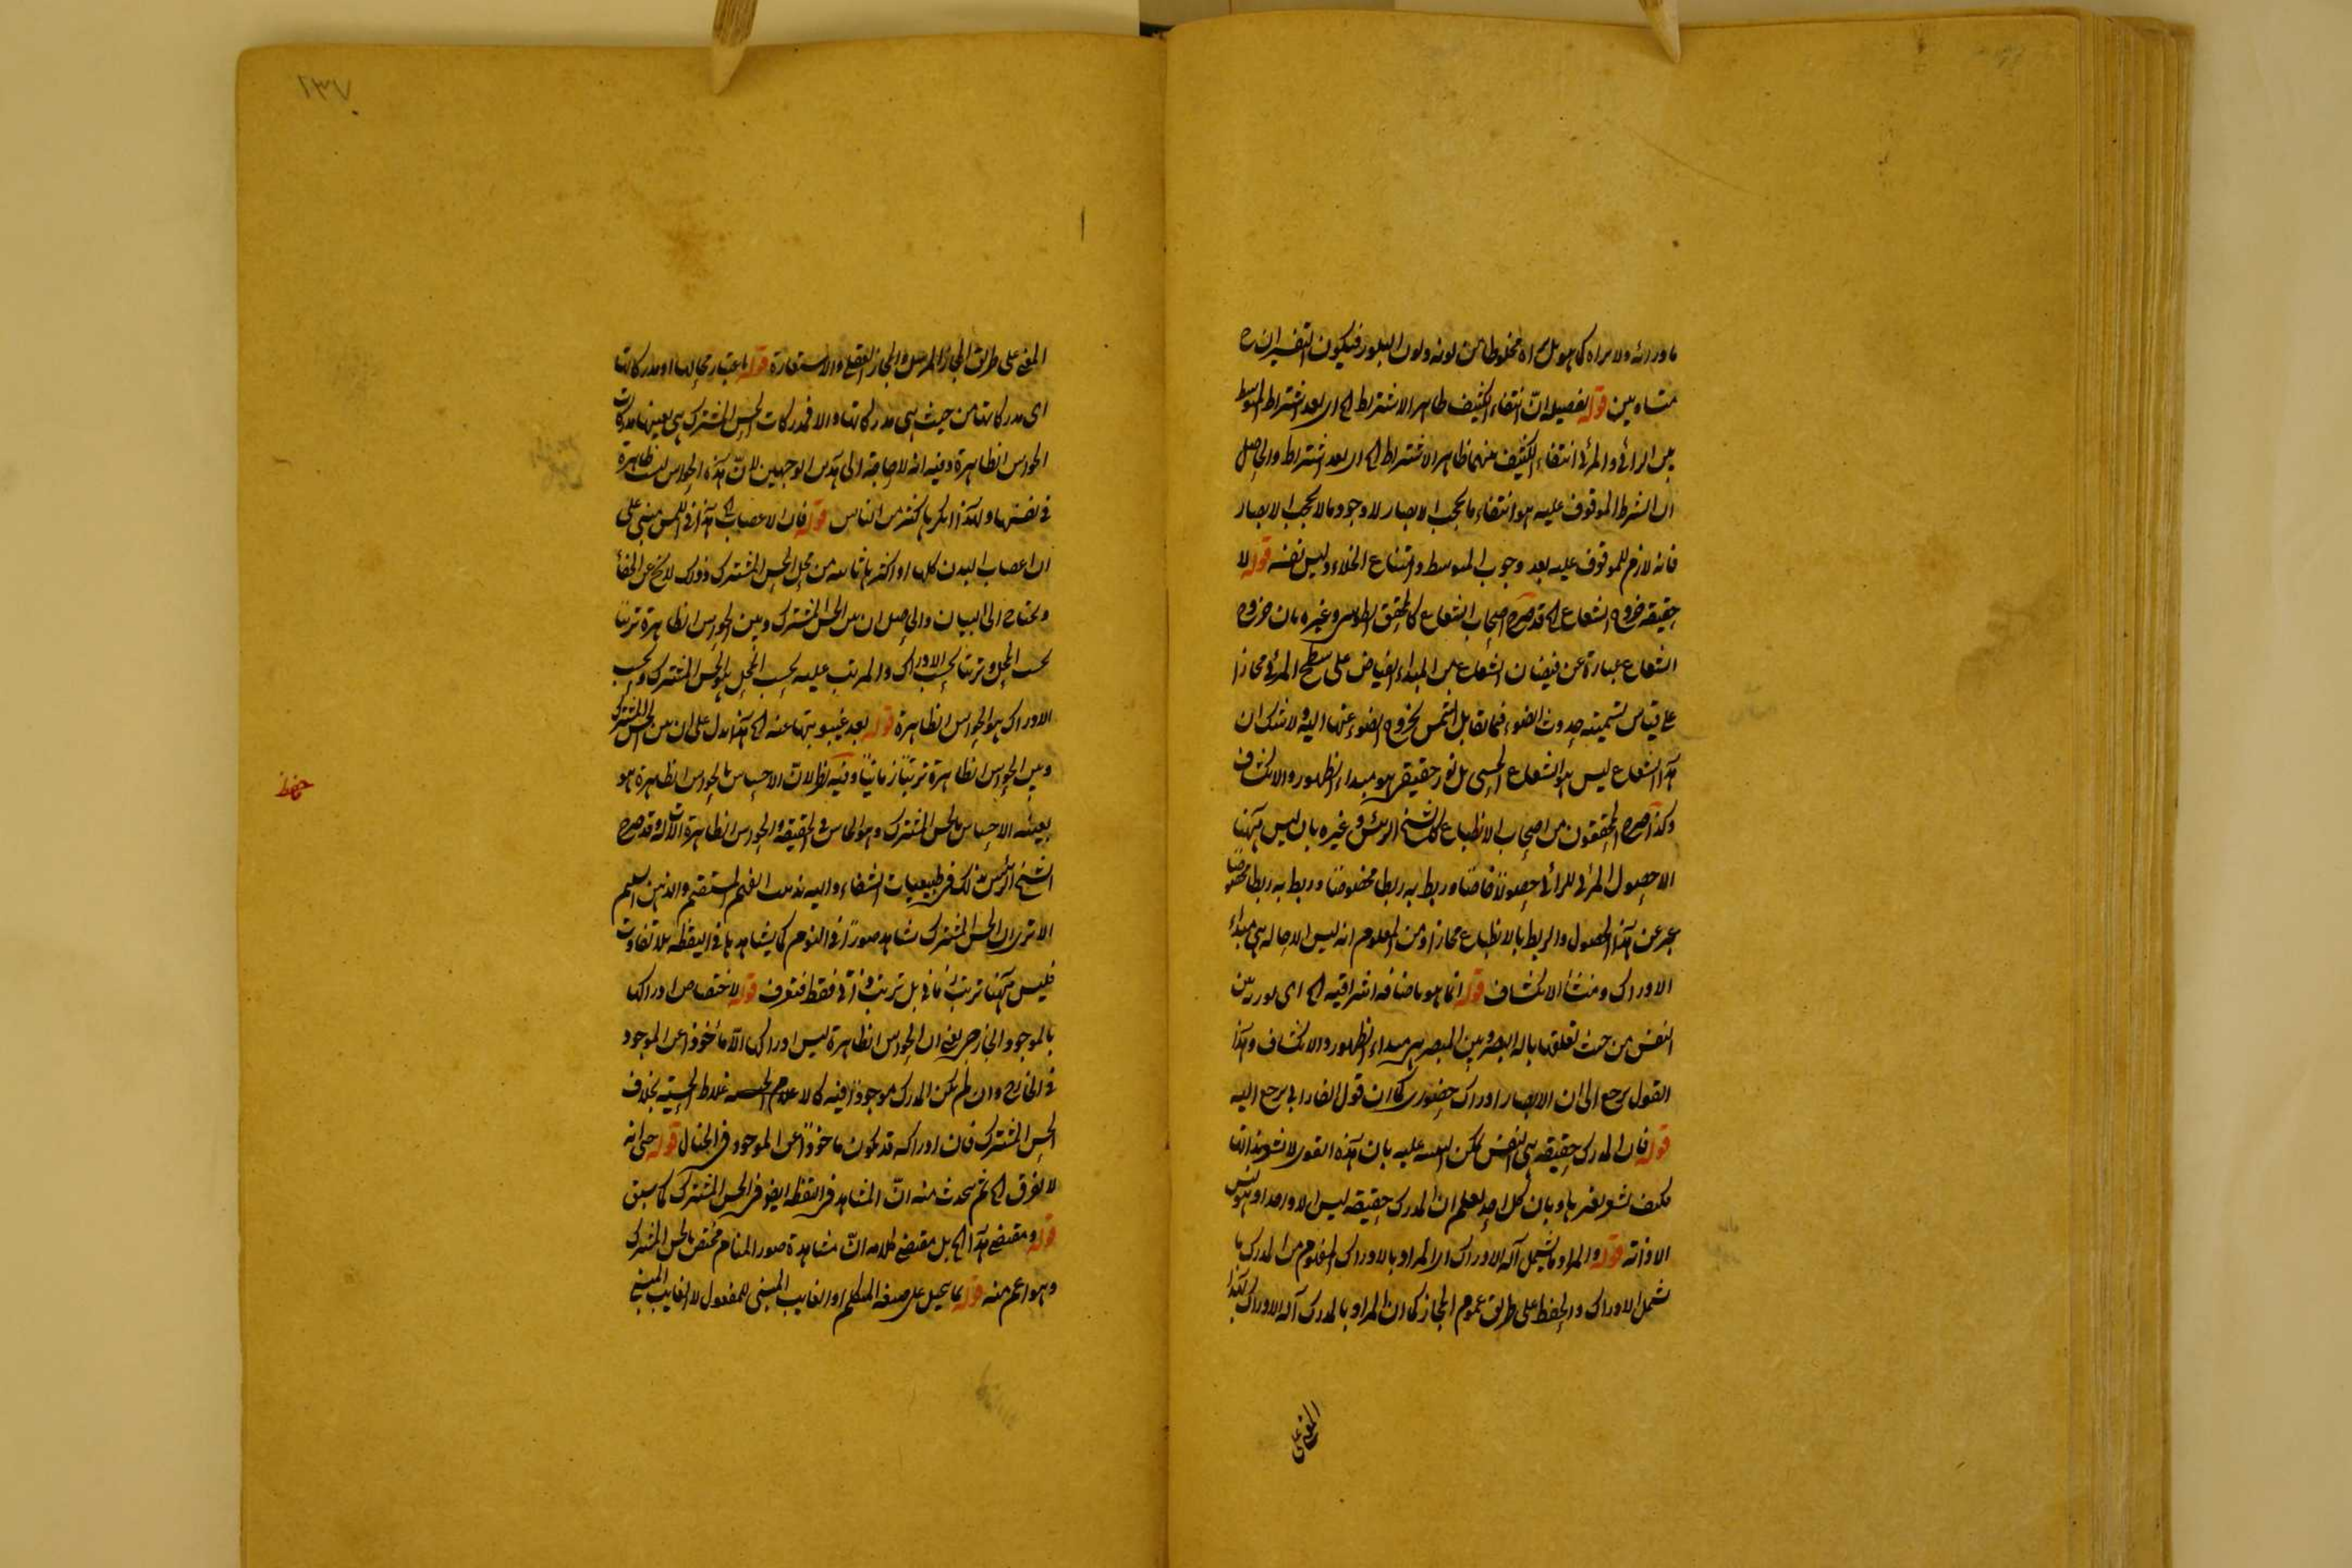 ما ورائه ولا يراه كما هو بل يراه مخلوطا من لونه ولون البلور فيكون التفسيران ح
متساويين قوله تفصيله ان انتفاء الكثيف ظاهر الاشتراط الخ اى بعد اشتراط التوسط
بين الرائي والمرئي انتفاء الكثيف بينهما ظاهر الاشتراط الخ اى بعد اشتراط والحاصل
ان الشرط الموقوف عليه هو انتفاء ما يحجب الابصار لا وجود ما لا يحجب الابصار
فانه لازم للموقوف عليه بعد وجوب المتوسط وامتناع الخلاء وليس نفسه قوله لا
حقيقة خروج الشعاع الخ قد صرح اصحاب الشعاع كالمحقق الطوسي وغيره بان خروج
الشعاع عبارة عن فيضان الشعاع من المبداء الفياض على سطح المرئي مجازا
على قياس تسمية حدوث الضوء فيما تقابل الشمس بخروج الضوء عنها اليه ولا شك ان
هذا الشعاع ليس هو الشعاع الحسى بل نور حقيقى هو مبداء الظهور والانكشاف
وكذا صرح المحققون من اصحاب الانطباع كالشيخ الرئيس وغيره بان ليس ههنا
الا حصول المرئي للرائي حصولا خاصا وربط به ربطا مخصوصا وربط به ربطا مخصوصا
عبر عن هذا الحصول والربط بالانطباع مجازا ومن المعلوم انه ليس الا حالة هي مبدأ
الادراك ومنشأ الانكشاف قوله انما هو باضافة اشراقية الخ اى نورية بين
النفس من حيث تعلقها بالة البصر وبين المبصر هي مبداء الظهور والانكشاف وهذا
القول يرجع الى ان الابصار ادراك حضورى كما ان قول الفارابي يرجع اليه
قوله فان المدرك حقيقة هى النفس يمكن التنبيه عليه بان هذه القوى لا تشعر بذاتها
فكيف تشعر بغيرها وبان كل احد يعلم ان المدرك حقيقة ليس الا واحدا وهو ليس
الا ذاته قوله والمراد ما يشمل آلة الادراك اى المراد بالادراك المفهوم من المدرك ما
يشمل الادراك والحفظ على طريق عموم المجاز كما ان المراد بالمدرك آلة الادراك بهذا
المعنى على
المعنى على طريق المجاز المرسل والمجاز العقلى والاستعارة قوله باعتبار محالها او مدركاتها
اى مدركاتها من حيث هى مدركاتها والا فمدركات الحس المشترك هى بعينها مدركات
الحواس الظاهرة وفيه انه لا حاجة الى هذين الوجهين لان هذه الحواس ليست ظاهرة
في نفسها ولهذا انكرها كثير من الناس قوله فان الاعصاب الخ هذا في اللمس مبنى على
ان اعصاب البدن كلها او اكثرها ناشئة من محل الحس المشترك وذلك لا يخ عن الخفأ
ويحتاج الى البيان والحاصل ان بين الحس المشترك وبين الحواس الظاهرة ترتبا
بحسب المحل وترتبا بحسب الادراك والمرتب عليه بحسب المحل هو الحس المشترك وبحسب
الادراك هو الحواس الظاهرة قوله بعد غيبوبتها عنه الخ هذا يدل على ان بين الحس المشترك
وبين الحواس الظاهرة ترتبا زمانيا وفيه نظر لان الاحساس بالحواس الظاهرة هو
بعينه الاحساس بالحس المشترك وهو الحاس في الحقيقة والحواس الظاهرة الات له وقد صرح
الشيخ الرئيس بذلك في طبيعيات الشفاء واليه يذهب الفهم المستقيم والذهن السليم
الا ترى ان الحس المشترك يشاهد صورا في النوم كما يشاهدها في اليقظه بلا تفاوت
فليس ههنا ترتب زماني بل ترتب ذاتي فقط فتعرف قوله لاختصاص ادراكها
بالموجود الخارجى يعنى ان الحواس الظاهرة ليس ادراكها الا مأخوذا عن الموجود
في الخارج وان لم يكن المدرك موجودا فيه كالاعلام غلاط الحسية بخلاف
الحس المشترك فان ادراكه قد يكون ماخوذا عن الموجود في الخيال قوله حتى انه
لا يفرق الخ ثم يحدث منه ان المشاهد في اليقظه ايضا في الحس المشترك كما سبق
قوله ومقتضى هذا الخ بل مقتضى كلامه ان مشاهدة صور المنام مختص بالحس المشترك
وهو اعم منه قوله على صيغة المتكلم او الغايب المبنى للمفعول لا الغايب المبنى